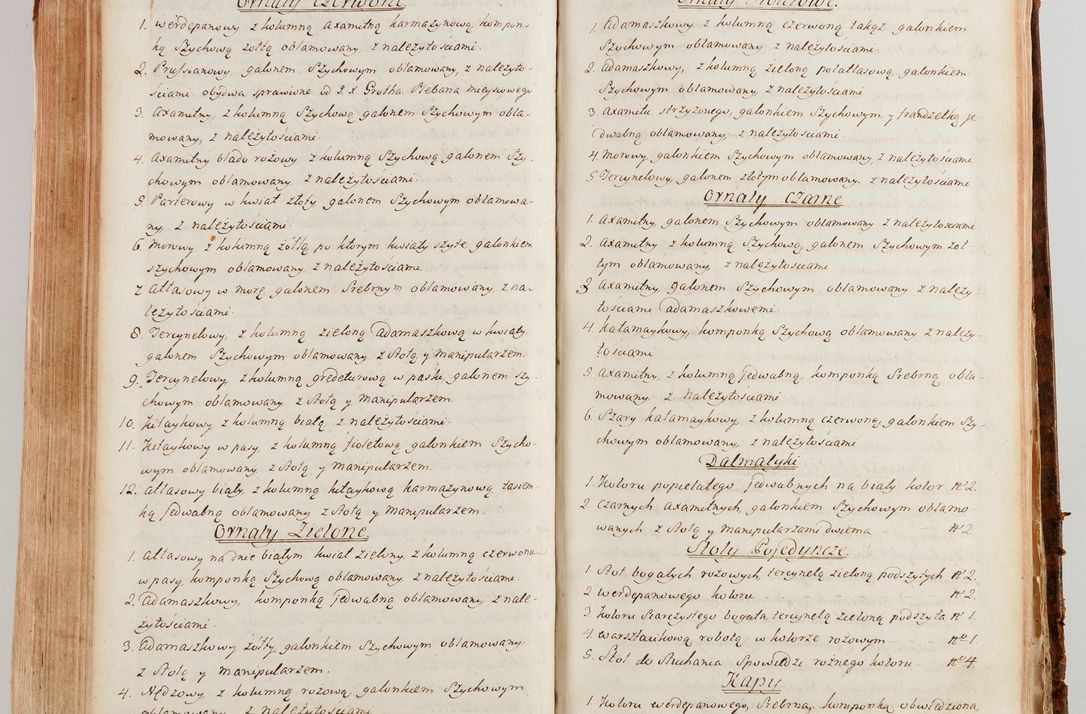 Ornaty Czerwone.
1. Werdepanowy z kolumną Axamitną karmazynową, kompon-
ką Szychową żołtą oblamowany, z należytościami.
2. Prussianowy, galonem Szychowym oblamowany, z należyto-
ściami obydwa sprawione od J. X. Grotha Plebana mieyscowego
3. Axamitny, z kolumną Szychową galonem Szychowym obla-
mowany, z należytościami
4. Axamitny blado rożowy z kolumną Szychową galonem Szy-
chowym oblamowany z należytościami.
5. Parterowy w kwiat złoty galonem Szychowym oblamowa-
ny z należytościami.
6 Morowy z kolumną żołtą, po ktorym kwiaty szyte, galonkiem
szychowym oblamowany z należytościami.
7 Atłasowy w morę, galonem Srebrnym oblamowany, z na-
leżytościami.
8. Tercynelowy, z kolumną zieloną Adamaszkową w kwiaty
galonem Szychowym oblamowany z Stołą y Manipularzem.
9. Tercynelowy z kolumną gredeturową w paski, galonem szy-
chowym oblamowany z Stołą y Manipularzem.
10. Kitaykowy z kolumną białą z należytościami.
11. Kitaykowy w pasy, z kolumną fioletową, galonkiem Szycho-
wym oblamowany z Stołą y Manipularzem.
12. Atłasowy biały, z kolumną kitaykową karmazynową, tasiem-
ką jedwabną oblamowany z Stołą y Manipularzem.
Ornaty Zielone.
1. Atłasowy na dnie białym kwiat zielony, z kolumną czerwoną
w pasy, komponką Szychową oblamowany z należytościami.
2. Adamaszkowy, komponką jedwabną oblamowany z nale-
żytościami.
3. Adamaszkowy żołty, galonkiem Szychowym oblamowany
z Stołą y Manipularzem.
4. Nędzowy z kolumną rożową galonkiem Szychowym
oblamowany z należytościami
Ornaty
1. Adamaszkowy z kolumną czerwoną takąż galonkiem
Szychowym oblamowany z należytościami.
2. Adamaszkowy, z kolumną zieloną połatłasową, galonkiem
Szychowym oblamowany z należytościami
3. Axamitu strzyżonego, galonkiem Szychowym, y frandzelką je-
dwabną oblamowany z należytościami.
4. Morowy, galonkiem Szychowym oblamowany, z należytościami
5. Tercynelowy, galonem złotym oblamowany z należytościami
Ornaty Czarne
1. Axamitny, galonem Szychowym oblamowany z należytościami
2. Axamitny, z kolumną Szychową, galonem Szychowym żoł-
tym oblamowany z należytościami
3 Axamitny, galonem Szychowym oblamowany, z należy-
tościami Adamaszkowemi
4. Kałamaykowy, komponką Szychową oblamowany z należy-
tościami
5. Axamitny, z kolumną jedwabną, komponką Srebrną obla-
mowany z Należytościami
6. Szary kałamaykowy, z kolumną czerwoną, galonkiem Szy-
chowym oblamowany, z należytościami
Dalmatyki
1. Koloru popielatego jedwabnych na biały kolor No 2.
2 Czarnych axamitnych, galonkiem Szychowym oblamo-
wanych z Stołą y Manipularzami dwiema - No 2
Stoły Pojedyncze
1. Stoł bogatych rożowych, tercynelą zieloną podszytych No 2.
2 Werdepanowego koloru - No 2.
3 Koloru Siarczystego bogata, tercynelą zieloną podszyta No 1.
4 Warsztatkową robotą w kolorze rożowym - No 1.
5. Stoł do Słuchania Spowiedzi rożnego koloru - No 4.
Kapy
1. Koloru werdepanowego, Srebrną komponką obwiedziona,